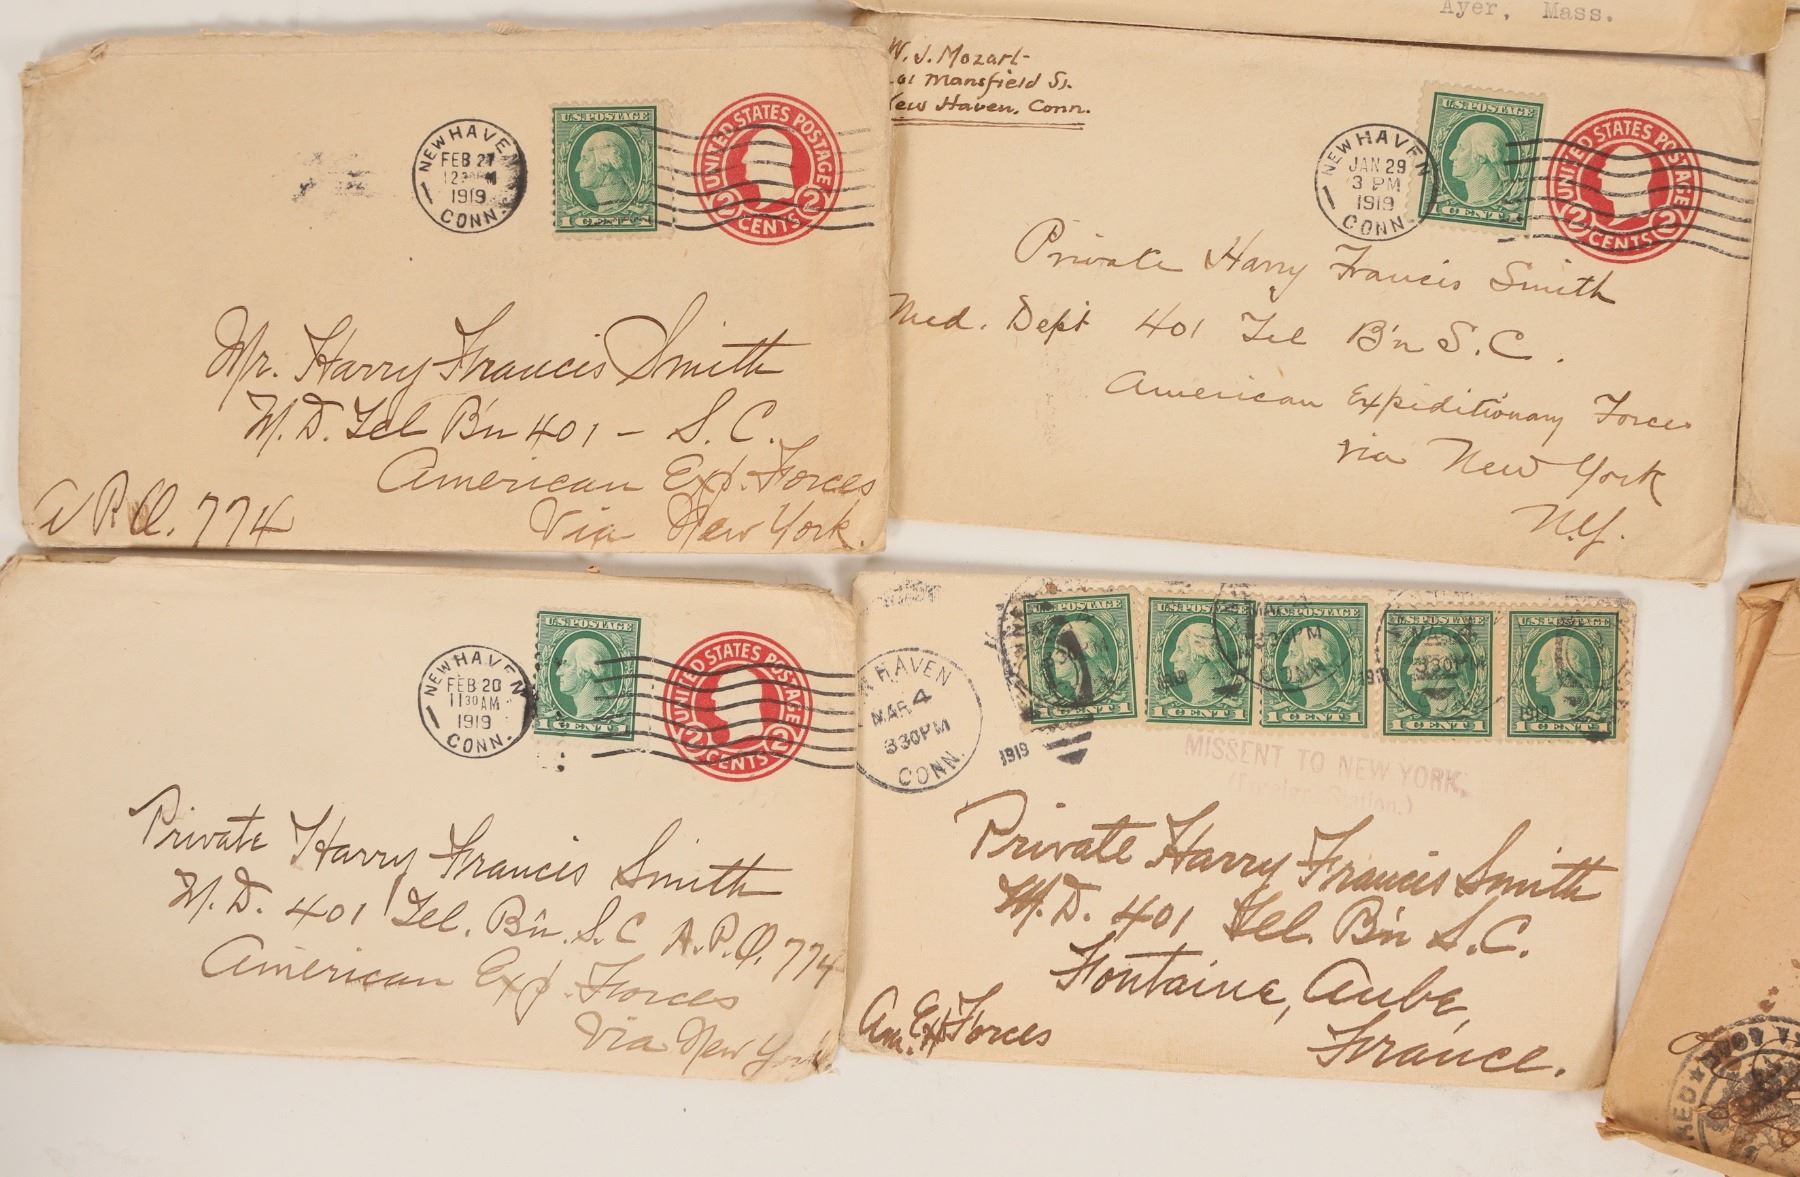 Ayer, Mass.
NEW HAVEN
FEB 27
1919
CONN.
U.S. POSTAGE
1 CENT 1
UNITED STATES POSTAGE
2 CENTS 2
Mr. Harry Francis Smith
M. D. Tel B'n 401 - S. C.
American Exp. Forces
A P. O. 774
Via New York.
W. J. Mozart
Mansfield St.
New Haven, Conn.
NEW HAVEN
JAN 29
3 PM
1919
CONN.
U.S. POSTAGE
1 CENT 1
UNITED STATES POSTAGE
2 CENTS 2
Private Harry Francis Smith
Med. Dept 401 Tel B'n S. C.
American Expeditionary Forces
via New York
N.Y.
NEW HAVEN
FEB 20
11 30 AM
1919
CONN.
U.S. POSTAGE
1 CENT 1
UNITED STATES POSTAGE
2 CENTS 2
Private Harry Francis Smith
M. D. 401 Tel. B'n. S. C A. P. O. 774
American Exp. Forces
Via New York.
HAVEN
MAR 4
330PM
CONN.
1919
U.S. POSTAGE
1 CENT 1
U.S. POSTAGE
1 CENT 1
U.S. POSTAGE
1 CENT 1
U.S. POSTAGE
1 CENT 1
U.S. POSTAGE
1 CENT 1
MISSENT TO NEW YORK,
(Foreign Station.)
Private Harry Francis Smith
M. D. 401 Tel. B'n S. C.
Fontaine, Aube,
Am. Ex Forces
France.